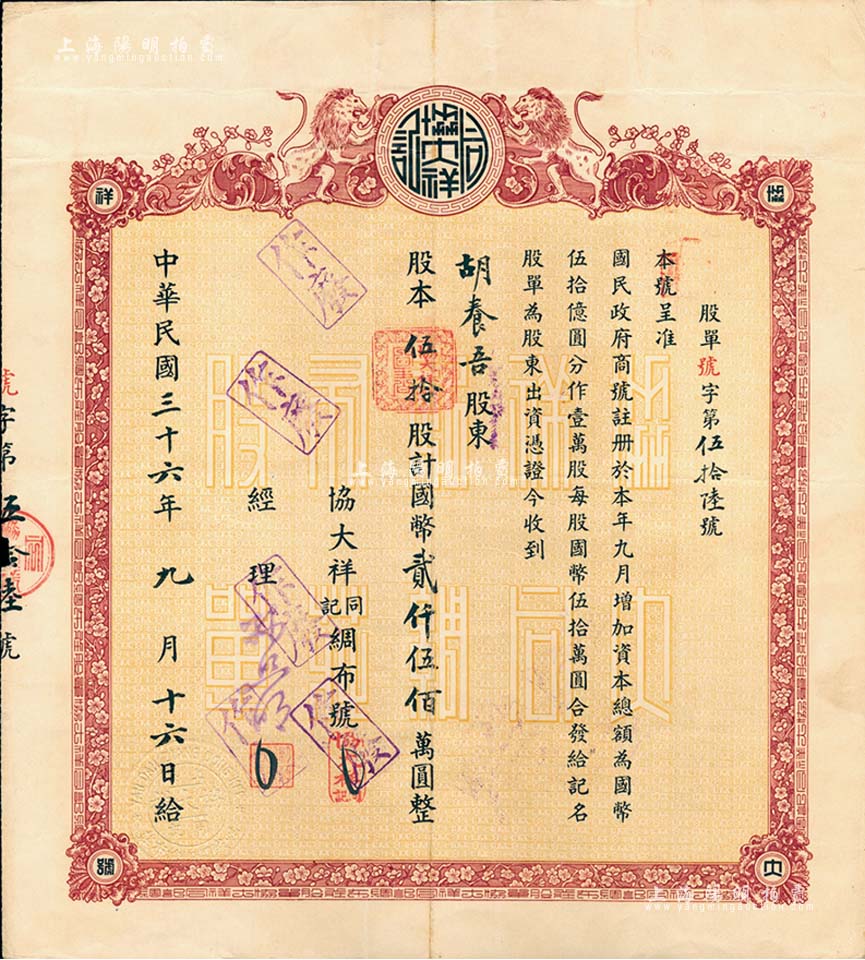 上海陽明拍賣
www.yangmingauction.com
協大祥同記
協
祥
大
號
股單號字第伍拾陸號
本號呈准
國民政府商號註册於本年九月增加資本總額為國幣
伍拾億圓分作壹萬股每股國幣伍拾萬圓合發給記名
股單為股東出資憑證今收到
胡養吾股東
股本伍拾股計國幣貳仟伍佰萬圓整
協大祥同記綢布號
經理
中華民國三十六年九月十六日給
作廢
作廢
作廢
作廢
作廢
號字第五拾陸號
上海陽明拍賣
www.yangmingauction.com
上海陽明拍賣
www.yangmingauction.com